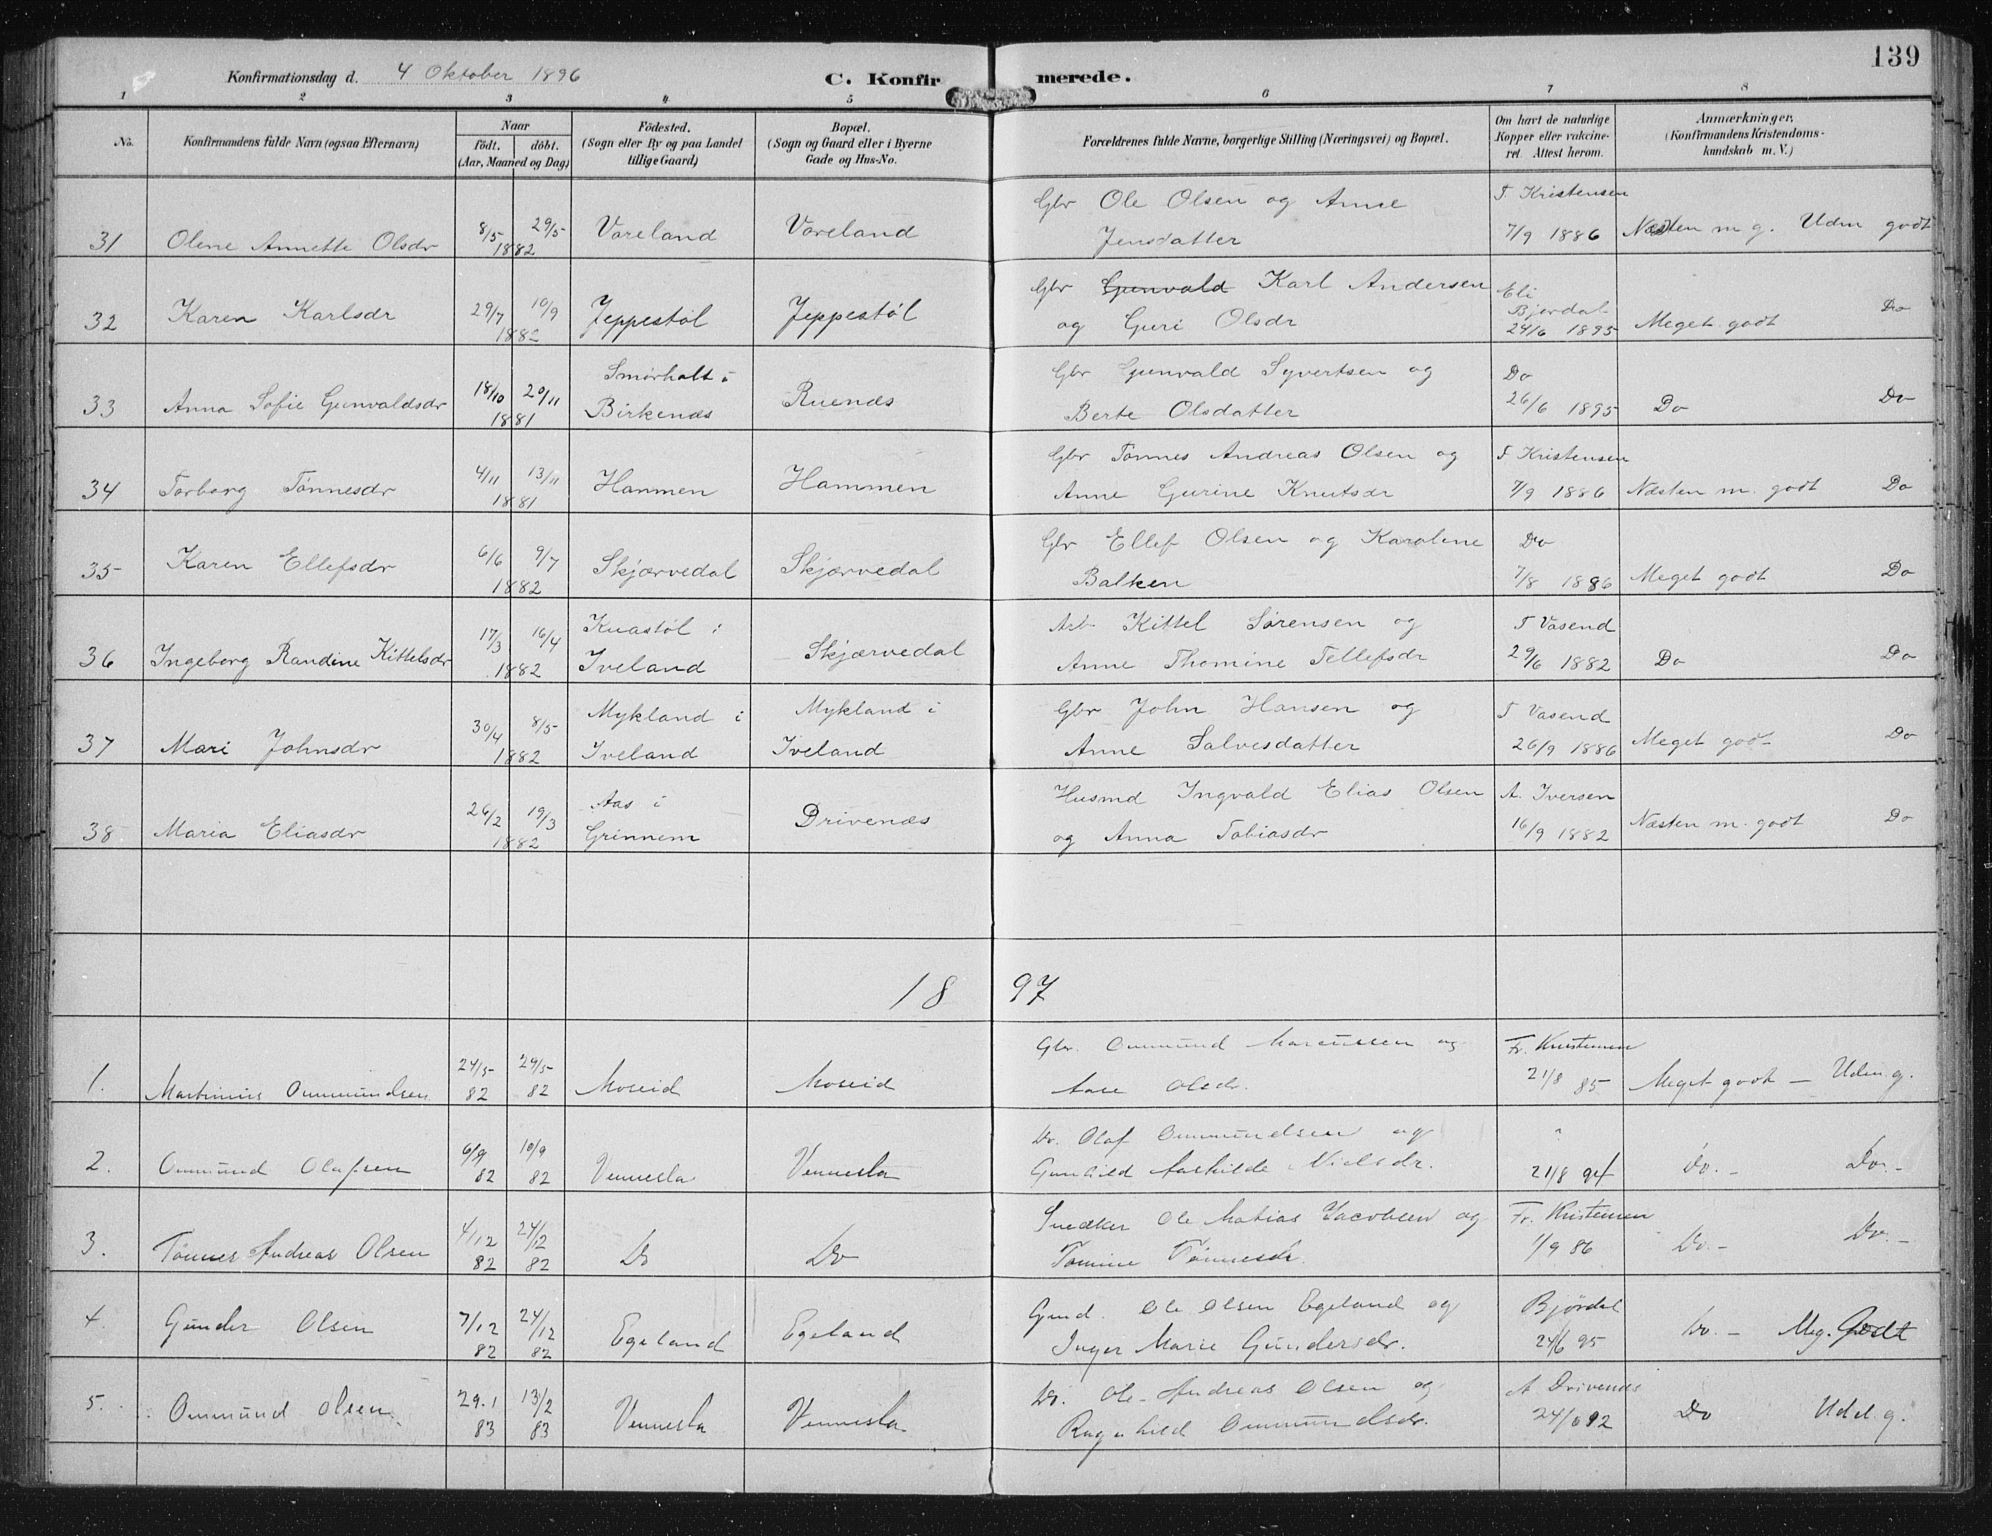 139
Konfirmationsdag d. 4 Oktober 1896 C. Konfirmerede.
1 2 3 4 5 6 7 8
No. Konfirmandens fulde Navn (ogsaa Efternavn) Naar födt. döbt. (Aar, Maaned og Dag) Födested. (Sogn eller By og paa Landet tillige Gaard) Bopæl. (Sogn og Gaard eller i Byerne Gade og Hus-No. Forældrenes fulde Navne, borgerlige Stilling (Næringsvei) og Bopæl. Om havt de naturlige Kopper eller vakcineret. Attest herom. Anmærkninger, (Konfirmandens Kristendomskundskab m. V.)
31 Olene Annette Olsdr 8/5 29/5 1882 Vareland Vareland Gbr Ole Olsen og Anne Jensdatter T Kristensen 7/9 1886 Næsten m g. Udm godt
32 Karen Karlsdr 29/7 10/9 1882 Jeppestøl Jeppestøl Gbr Gunvald Karl Andersen og Guri Olsdr Eli Bjordal 24/6 1895 Meget godt Do
33 Anna Sofie Gunvaldsdr 18/10 20/11 1881 Smørholt i Birkenæs Ruenæs Gbr Gunvald Syvertsen og Berte Olsdatter Do 26/6 1895 Do Do
34 Torborg Tønnesdr 4/11 13/11 1881 Hammen Hammen Gbr Tønnes Andreas Olsen og Anne Gurine Knutsdr T Kristensen 7/9 1886 Næsten m. godt Do
35 Karen Ellefsdr 6/6 9/7 1882 Skjærvedal Skjærvedal Gbr Ellef Olsen og Karoline Balken Do 7/8 1886 Meget godt Do
36 Ingeborg Randine Kittelsdr 17/3 16/4 1882 Knastøl i Iveland Skjærvedal Arb Kittel Sørensen og Anne Thomine Tellefsdr T Vasend 29/6 1882 Do Do
37 Mari Johnsdr 30/4 8/5 1882 Mykland i Iveland Mykland i Iveland Gbr John Hansen og Anne Salvesdatter T Vasend 26/9 1886 Meget god Do
38 Maria Eliasdr 26/2 19/3 1882 Aas i Grinnem Drivenæs Husmd Ingvald Elias Olsen og Anna Tobiasdr A. Iversen 16/9 1882 Næsten m. godt Do
1897
1. Martinius Ommundsen 24/5 82 29/5 82 Moseid Moseid Gbr. Ommund Marcussen og Aase Olsdr. Fr. Kristensen 21/8 85 Meget godt — Udm. g.
2. Ommund Olafsen 6/9 82 10/9 82 Vennesla Vennesla Do. Olaf Ommundsen og Gunhild Aashilde Nielsdr. " 21/8 94 Do. — Do. —
3. Tønnes Andreas Olsen 4/12 82 24/12 82 Do Do Snedker Ole Matias Jacobsen og Tomine Tønnesdr. Fr. Kristensen 1/9 86 Do. — Do. —
4. Gunder Olsen 7/12 82 24/12 82 Egeland Egeland Gmd. Ole Olsen Egeland og Inger Marie Gundersdr. Bjørdal 24/6 95 Do. — Meg. Godt
5. Ommund Olsen 29.1 83 13/2 83 Vennesla Vennesla Do. Ole Andreas Olsen og Ragnhild Ommundsdr. A Drivenæs 24/6 92 Do Udd. g.